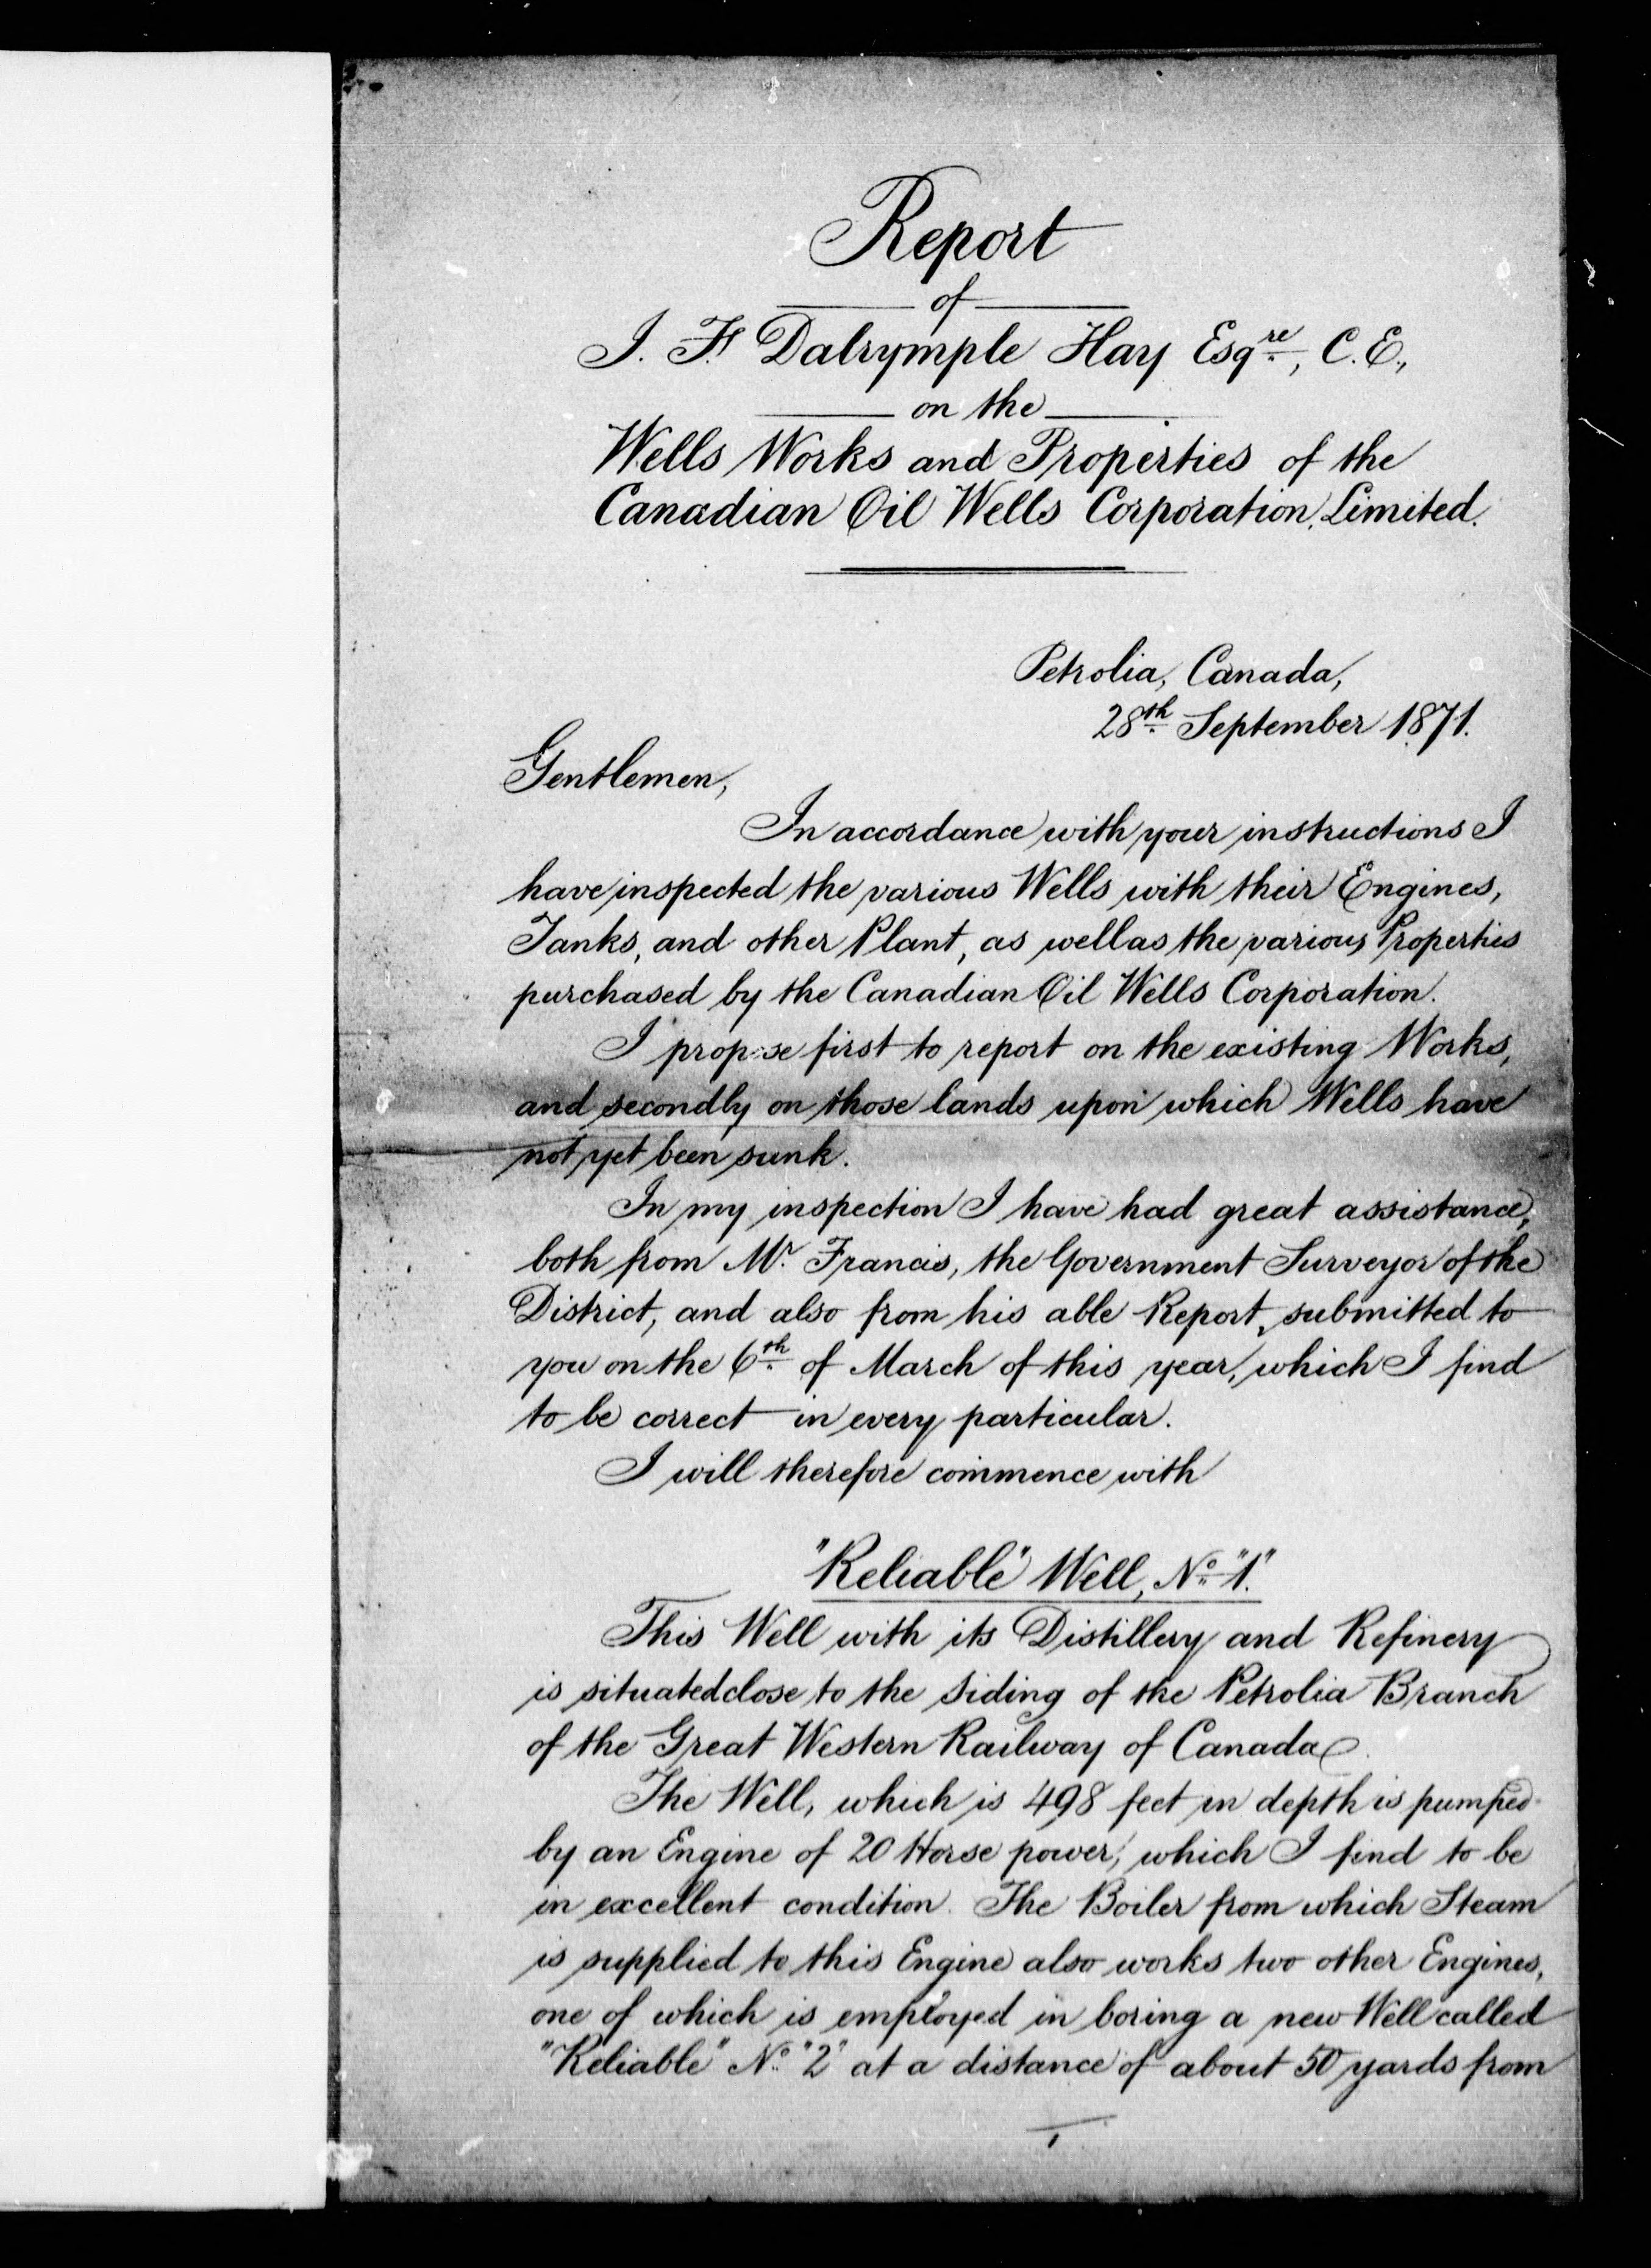 Report
of
J. F. Dalrymple Hay Esqre., C.E.,
on the
Wells Works and Properties of the
Canadian Oil Wells Corporation, Limited.
Petrolia, Canada,
28th September 1871.
Gentlemen,
In accordance with your instructions I
have inspected the various Wells with their Engines,
Tanks, and other Plant, as well as the various Properties
purchased by the Canadian Oil Wells Corporation.
I propose first to report on the existing Works,
and secondly on those lands upon which Wells have
not yet been sunk.
In my inspection I have had great assistance,
both from Mr. Francis, the Government Surveyor of the
District, and also from his able Report, submitted to
you on the 6th of March of this year, which I find
to be correct in every particular.
I will therefore commence with
"Reliable" Well, No. "1."
This Well with its Distillery and Refinery
is situated close to the Siding of the Petrolia Branch
of the Great Western Railway of Canada.
The Well, which is 498 feet in depth is pumped
by an Engine of 20 Horse power, which I find to be
in excellent condition. The Boiler from which Steam
is supplied to this Engine also works two other Engines,
one of which is employed in boring a new Well called
"Reliable" No. "2" at a distance of about 50 yards from